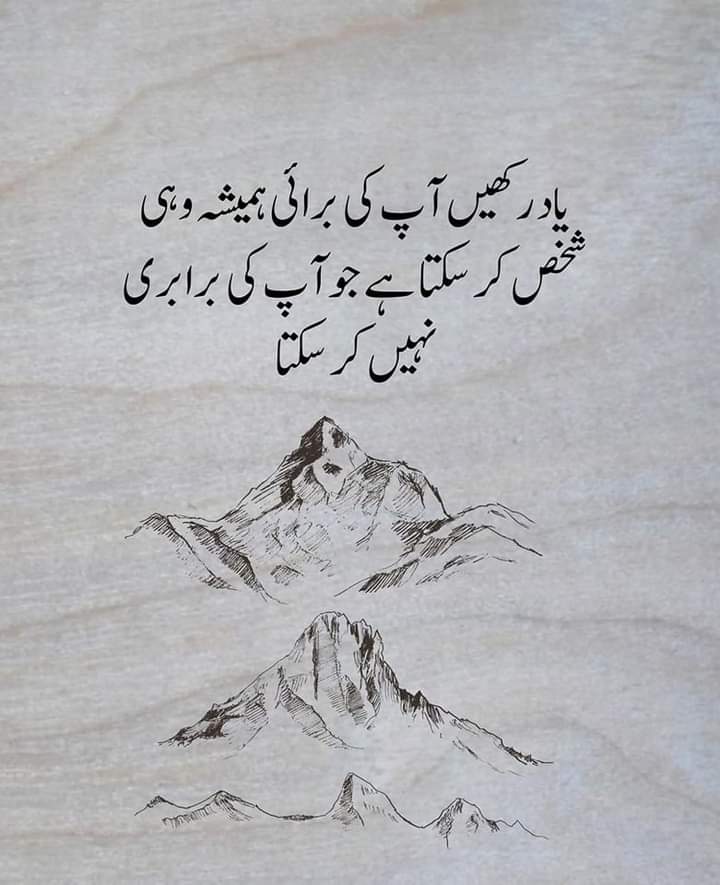 یاد رکھیں آپ کی برائی ہمیشہ وہی
شخص کر سکتا ہے جو آپ کی برابری
نہیں کر سکتا